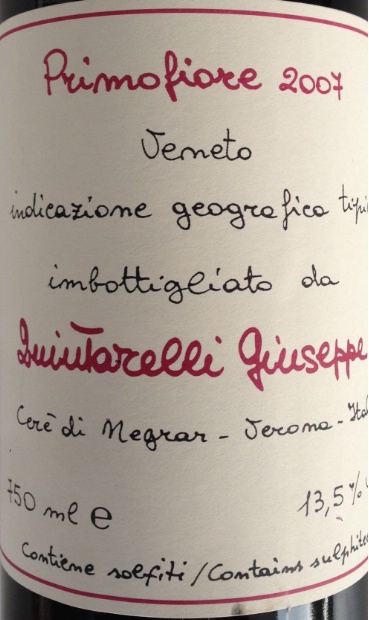 Primofiore 2007
Veneto
indicazione geografica tipi
imbottigliato da
Quintarelli Giuseppe
Cerè di Negrar - Verona - Ital
750 ml e
13,5%
Contiene solfiti / Contains sulphite